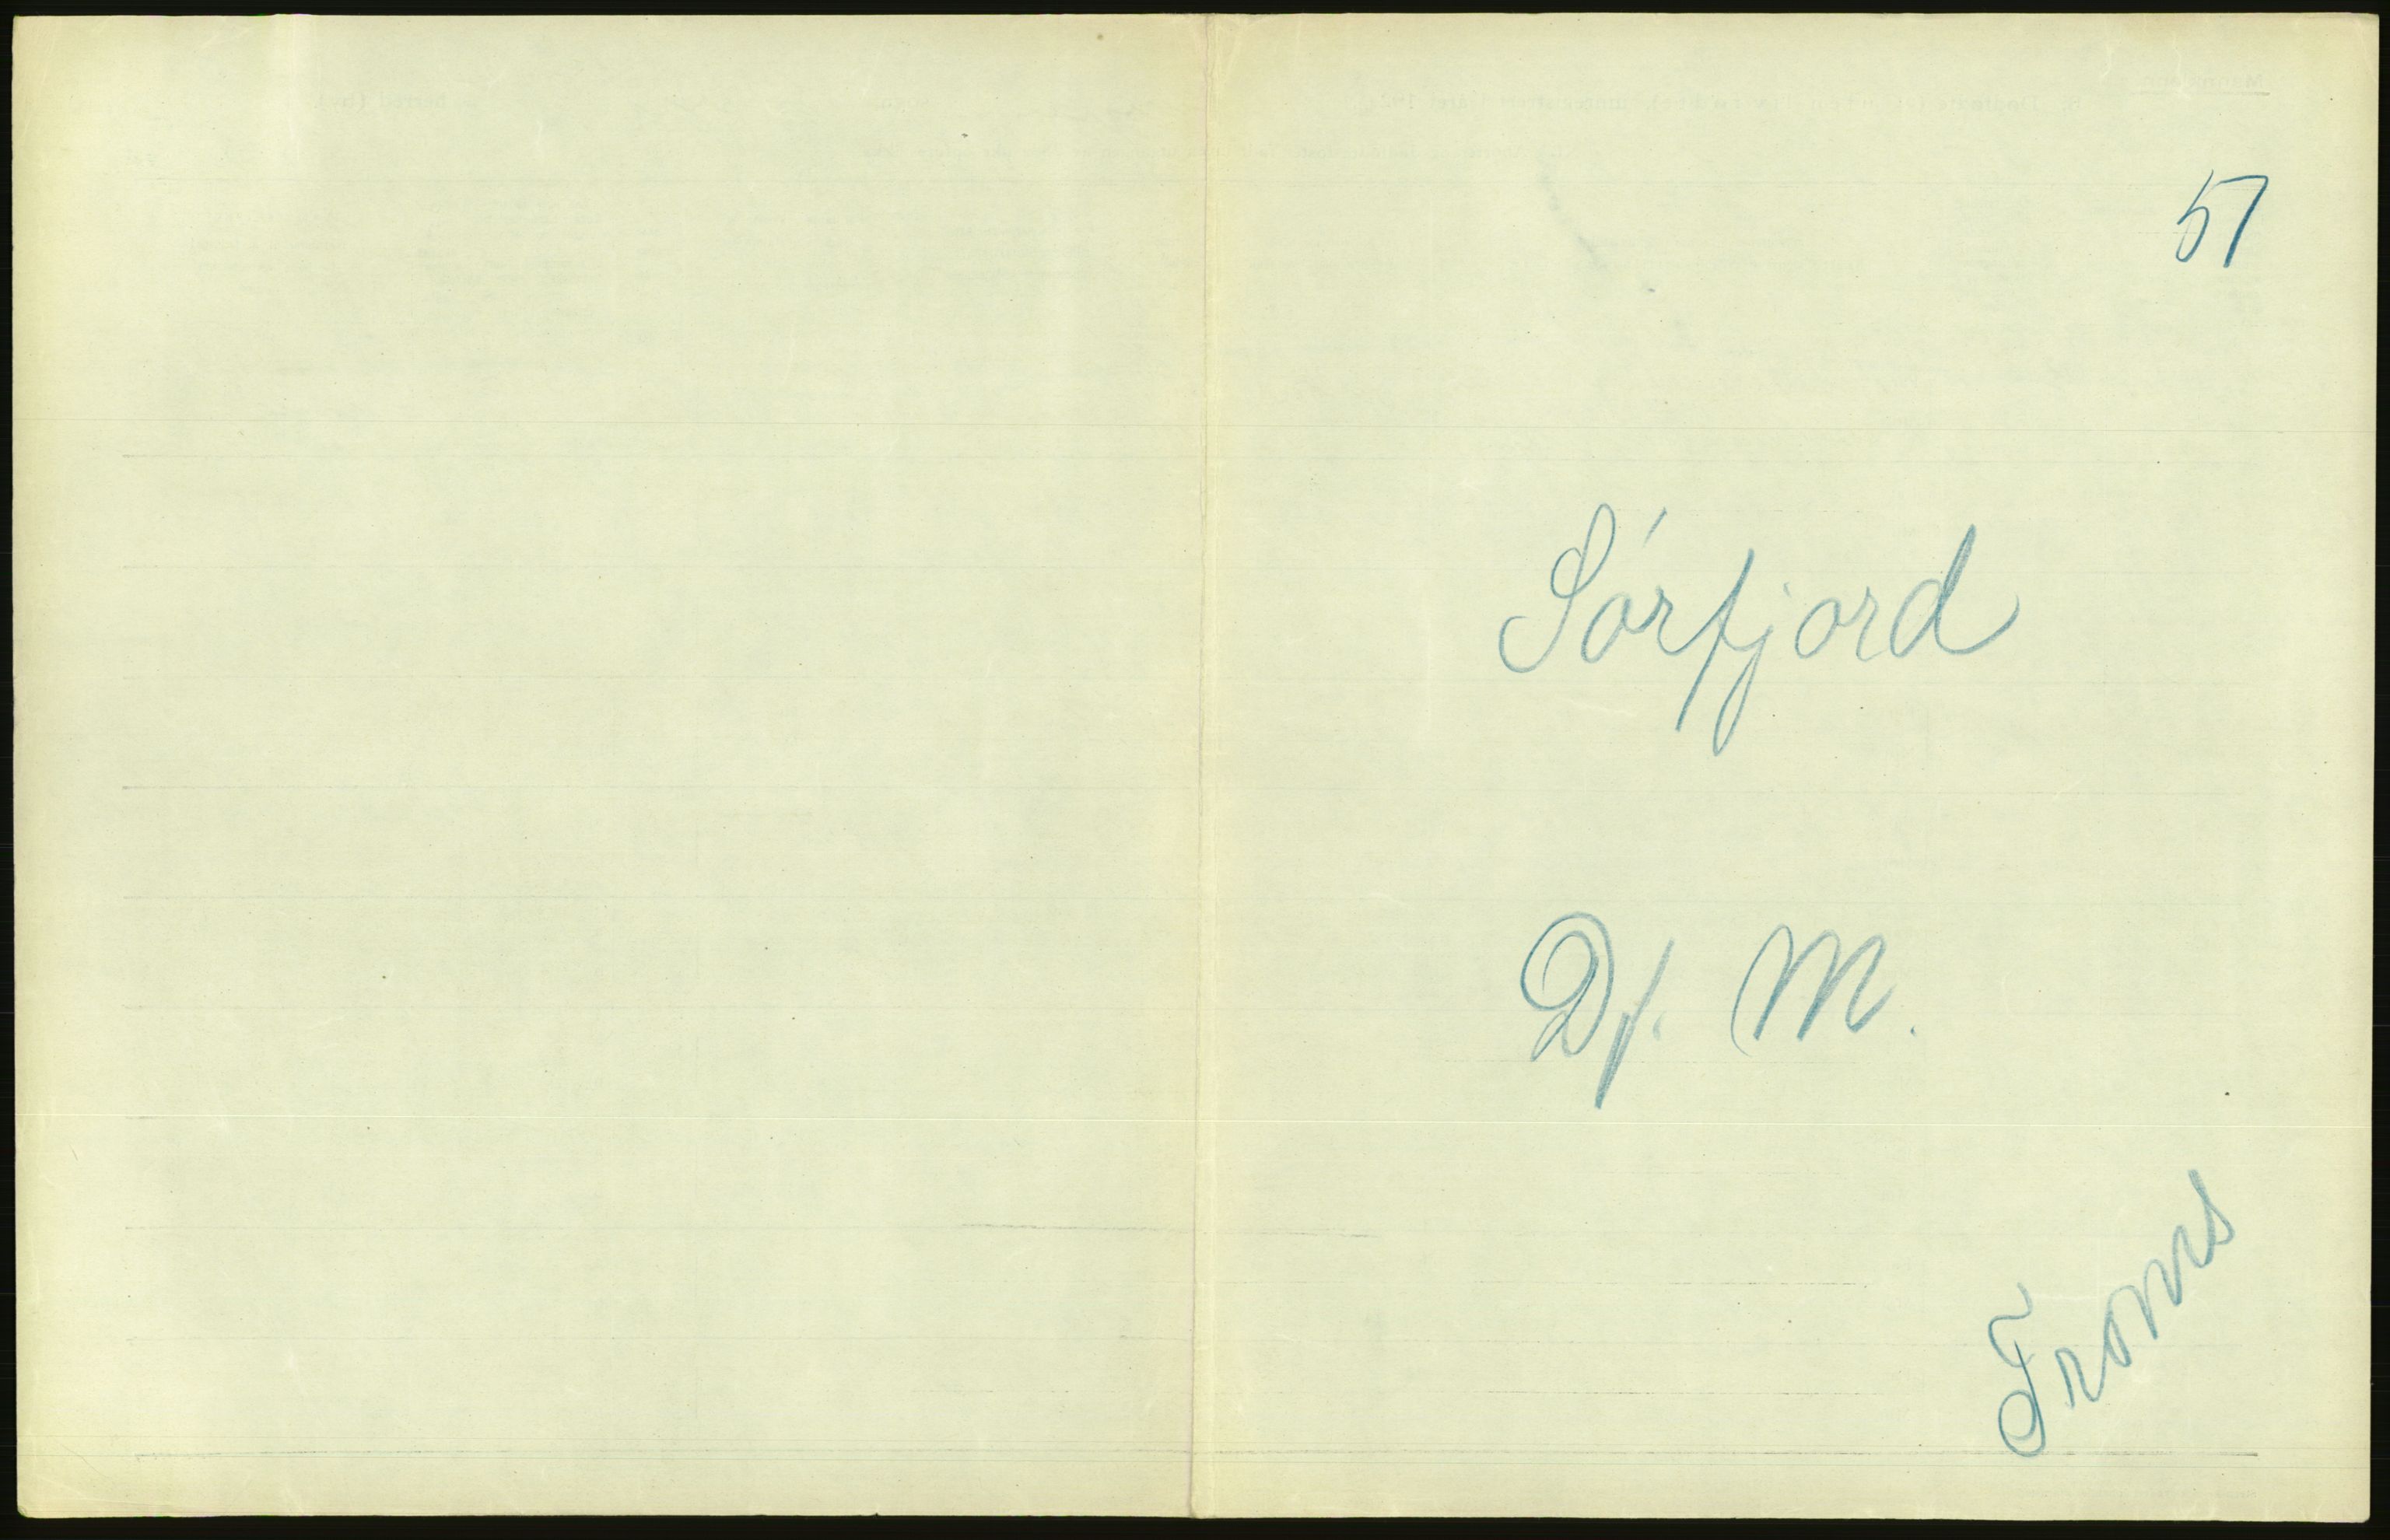 57
Sórfjord
Df. M.
Troms